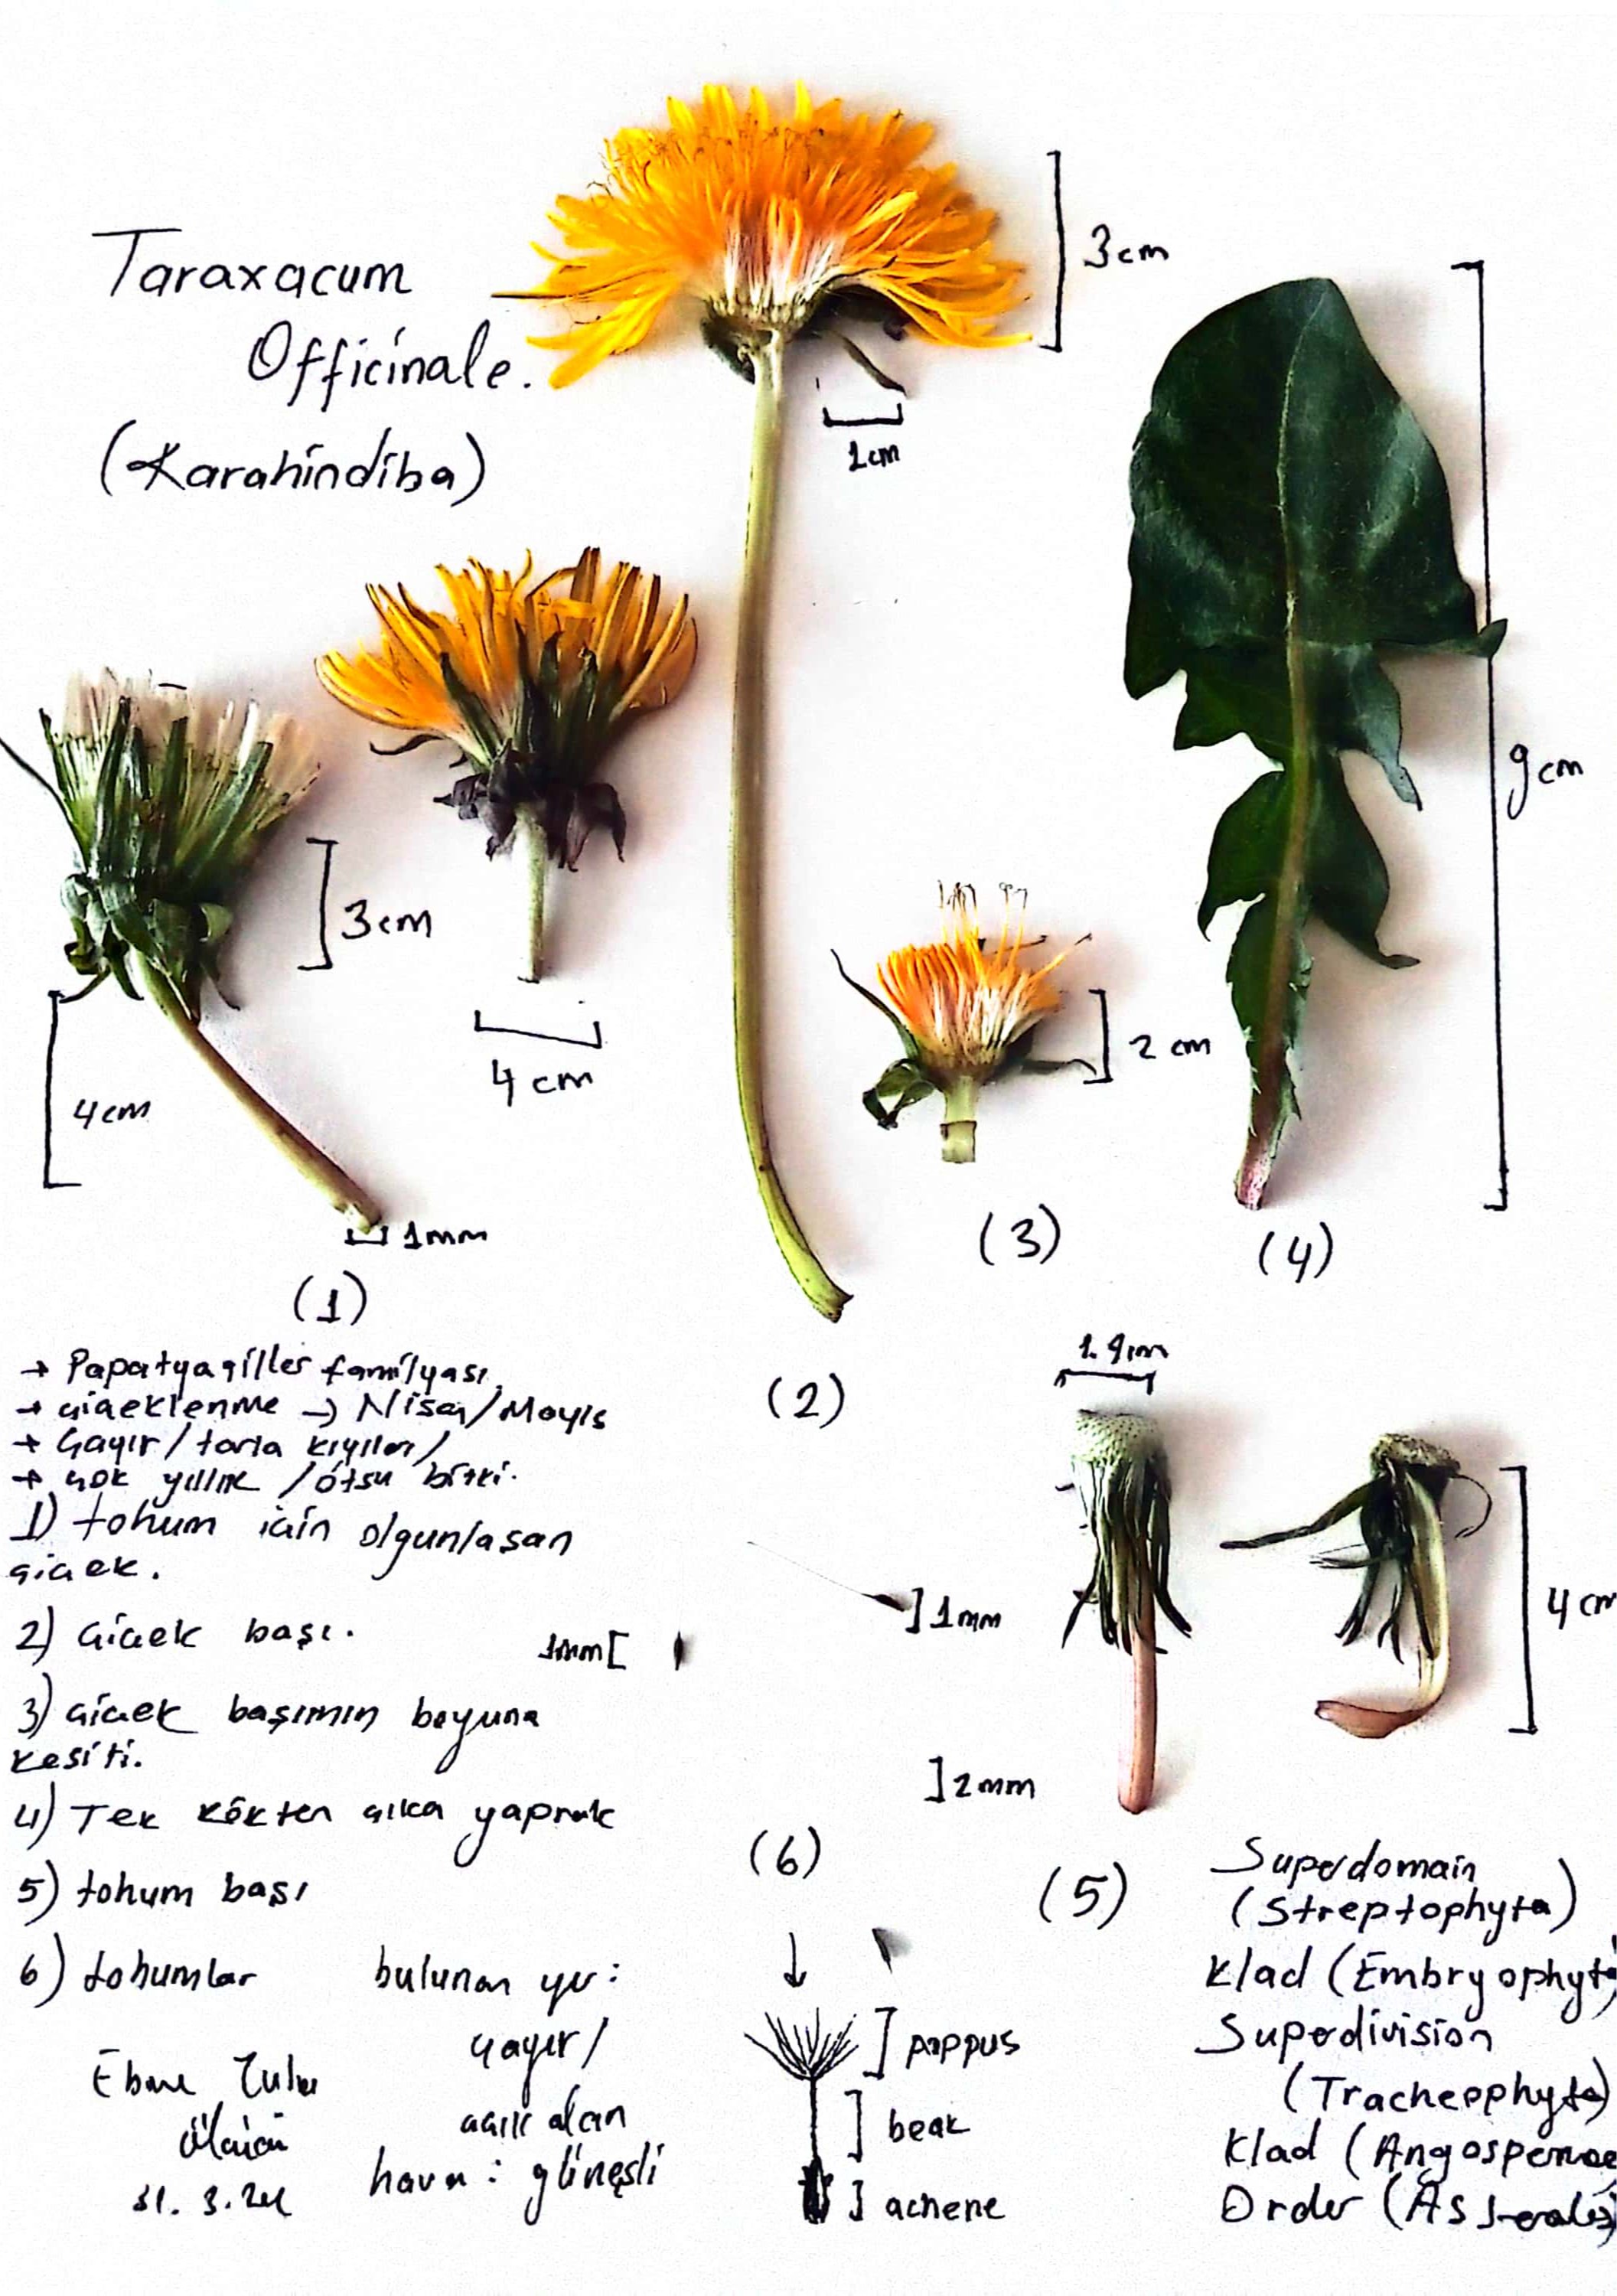 Taraxacum
Officinale.
(Karahindiba)
3cm
1cm
9cm
3cm
4cm
4cm
1mm
2 cm
(1)
(2)
(3)
(4)
→ Papatyagiller familyası
→ çiçeklenme → Nisan/Mayıs
→ Çayır/tarla kıyıları/
→ çok yıllık /otsu bitki.
1) tohum için olgunlaşan
çiçek.
2) çiçek başı.
3) çiçek başımın boyuna
kesiti.
4) Tek kökten çıka yaprak
5) tohum başı
6) tohumlar
1mm
1mm
2mm
4 cm
(6)
(5)
bulunan yer:
çayır/
açık alan
hava: güneşli
31.3.24
pappus
beak
achene
Superdomain
(Streptophyta)
Klad (Embryophyta
Superdivision
(Tracheophyta)
Klad (Angospermae
Order (Asterales)